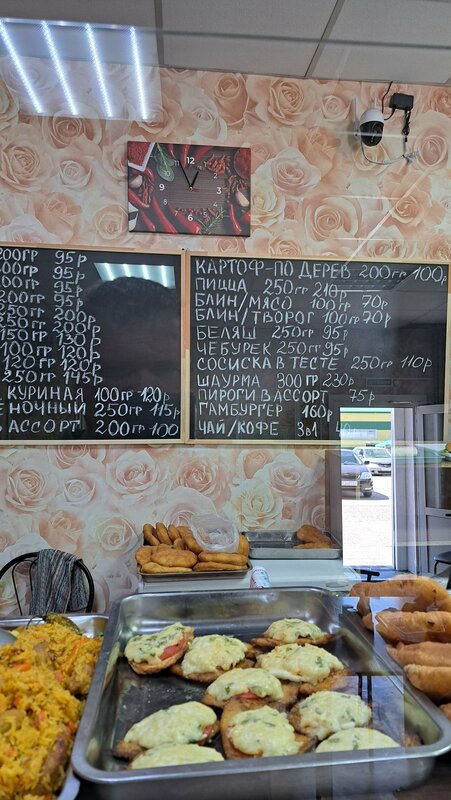 12
200ГР 95Р
95Р
95Р
95Р
250ГР 200Р
150 130Р
100ГР 120Р
120ГР 120Р
250ГР 145Р
КУРИНАЯ 100ГР 120Р
ЕНОЧНЫЙ 250ГР 115Р
АССОРТ 200ГР 100
КАРТОФ-ПО ДЕРЕВ 200ГР 100Р
ПИЦЦА 250ГР 210Р
БЛИН/МЯСО 100ГР 70Р
БЛИН/ТВОРОГ 100ГР 70Р
БЕЛЯШ 250ГР 95Р
ЧЕБУРЕК 250ГР 95Р
СОСИСКА В ТЕСТЕ 250ГР 110Р
ШАУРМА 300ГР 230Р
ПИРОГИ В АССОРТ 75Р
ГАМБУРГЕР 160Р
ЧАЙ/КОФЕ 3в1